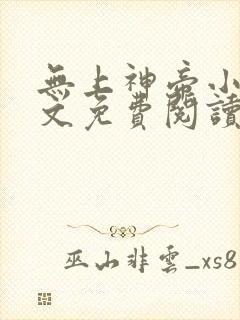 無上神帝小
文免費閱讀
巫山非雲_xs8